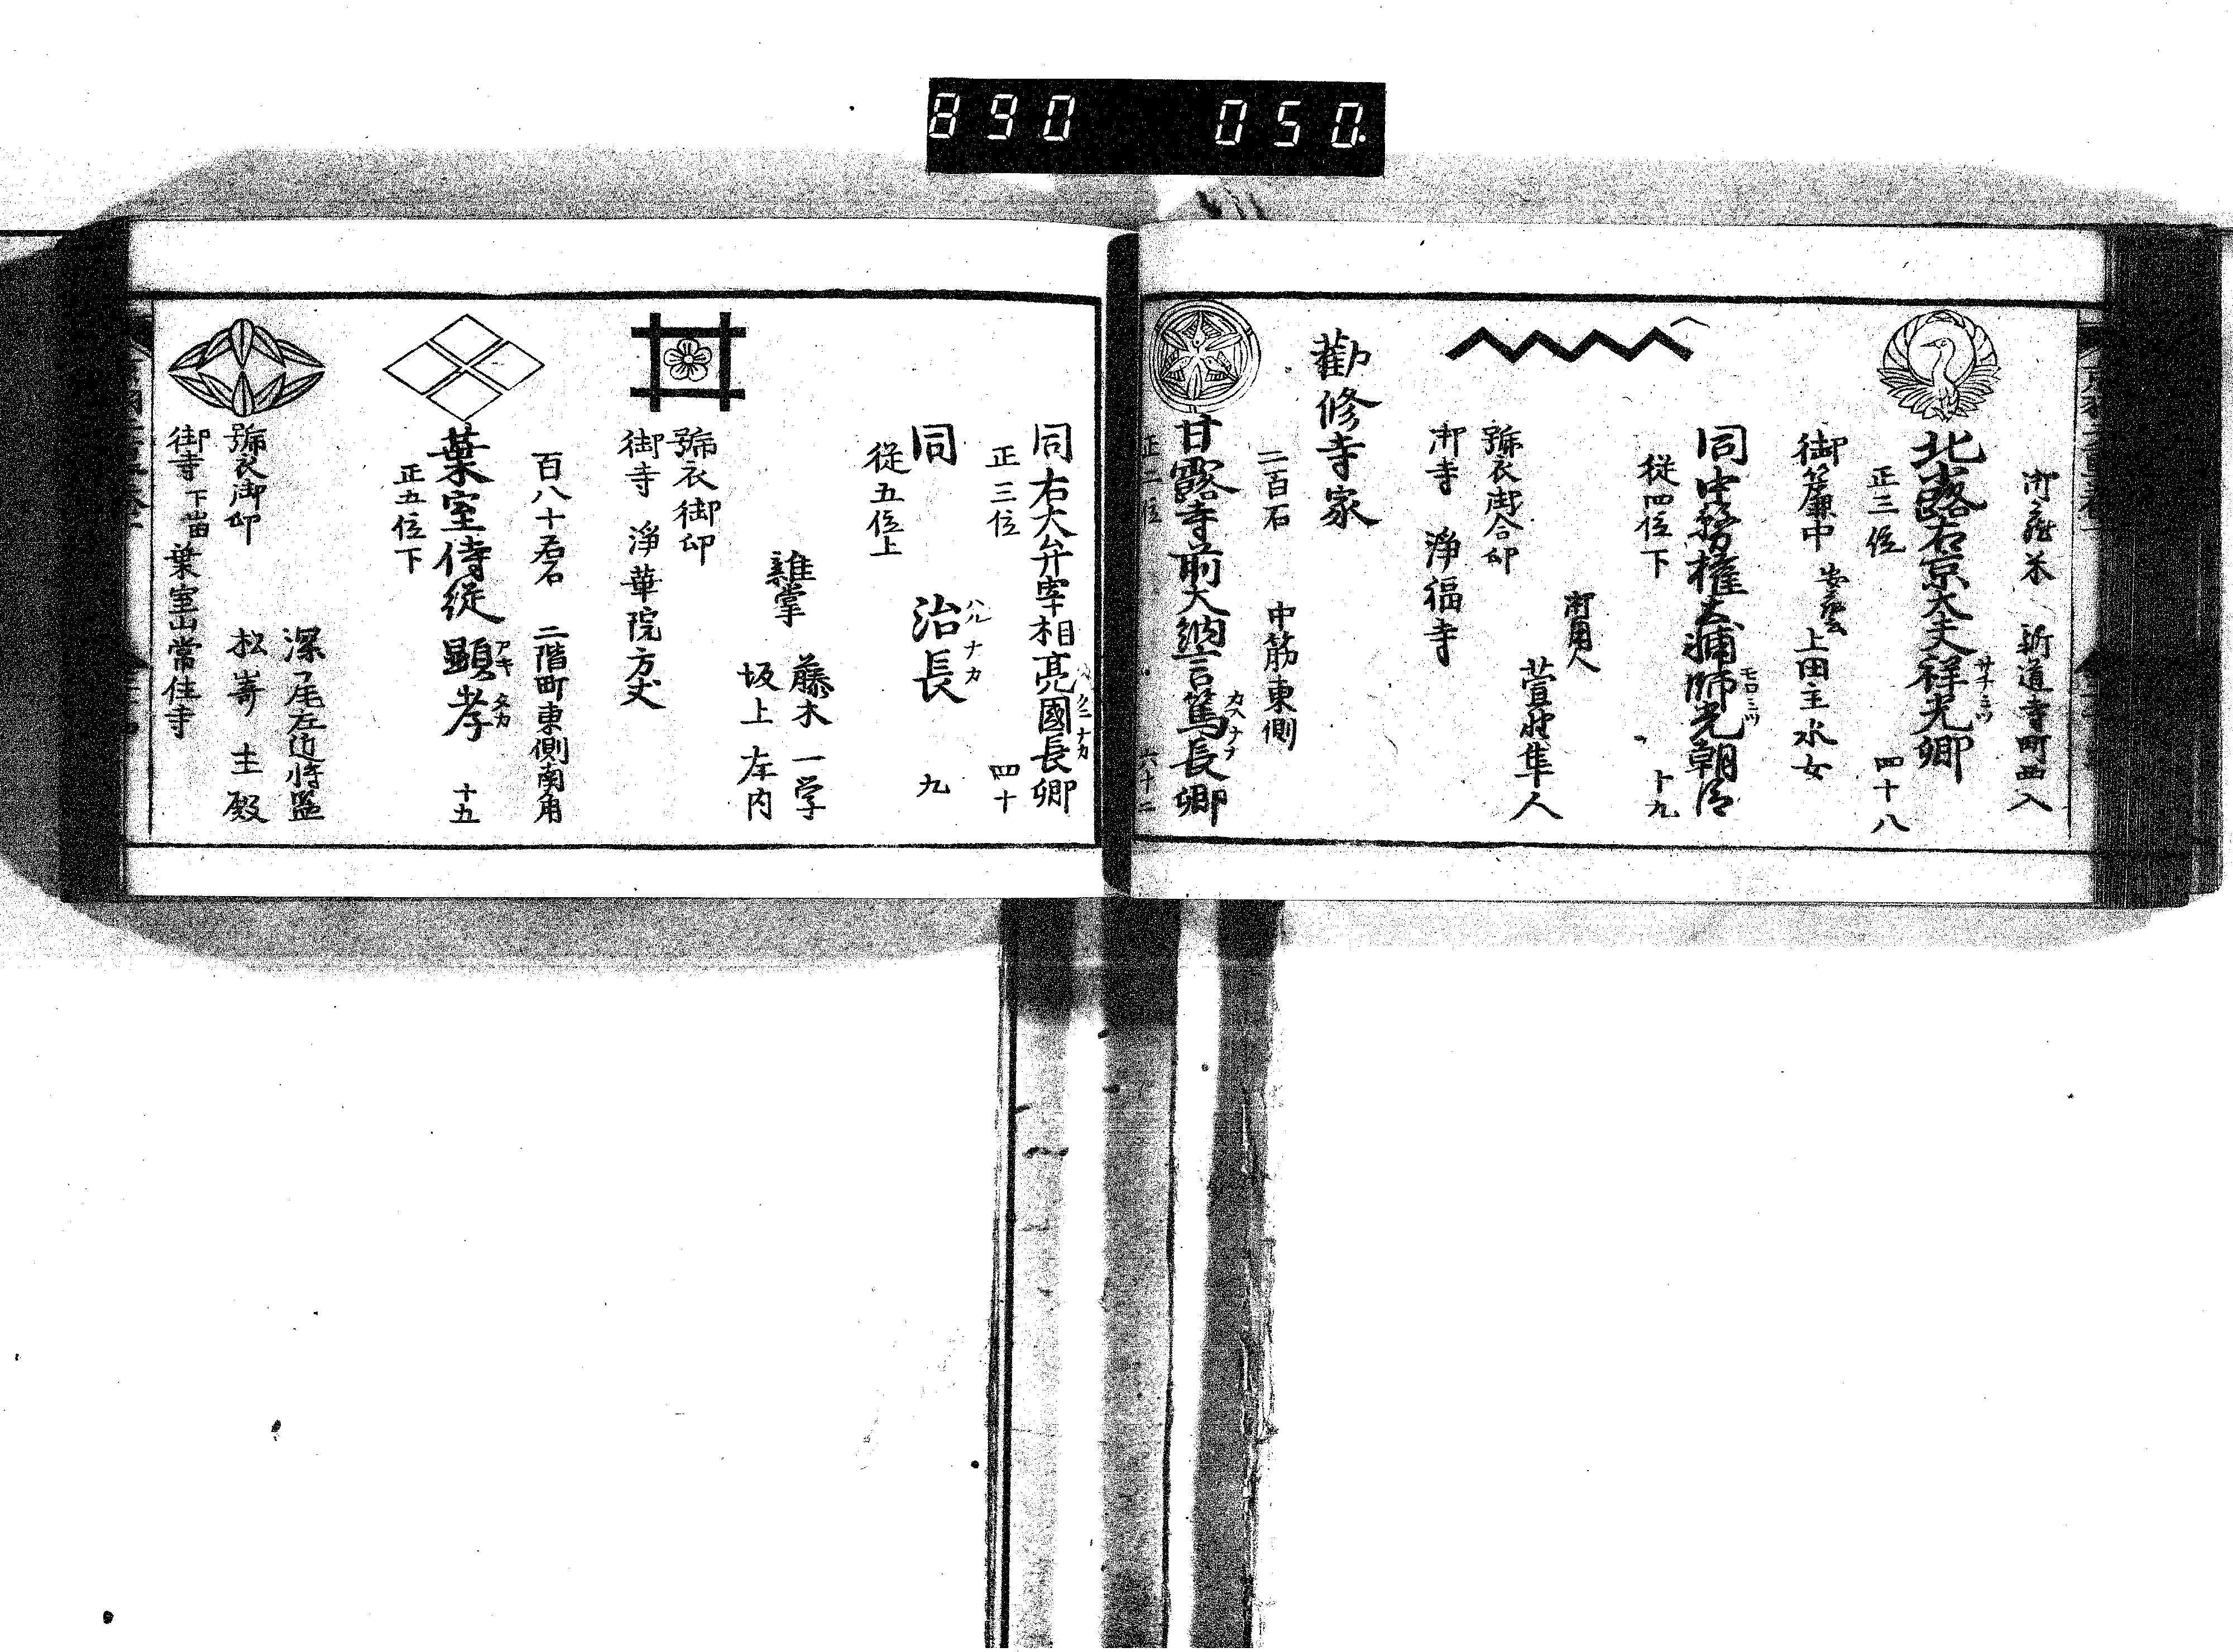 890 050.
新道寺町西入
北小路右京大夫祥光卿
サチミツ
正三位 四十八
御簾中 上田主水女
同中務権大輔師光朝臣
モロミツ
従四位下 十九
御用人
萱野隼人
號衣御合印
御寺 浄福寺
勸修寺家
二百石 中筋東側
甘露寺前大納言篤長卿
カスナヲ
正二位 六十二
同右大弁宰相亮國長卿
クニナカ
正三位 四十
同 治長 九
ハルナカ
従五位上
雜掌 藤木一学
坂上左内
號衣御印
御寺 淨華院方丈
百八十石 二階町東側南角
葉室侍従顕孝 十五
アキタカ
正五位下
深尾左近将監
松嵜主殿
號衣御印
御寺 葉室山常住寺